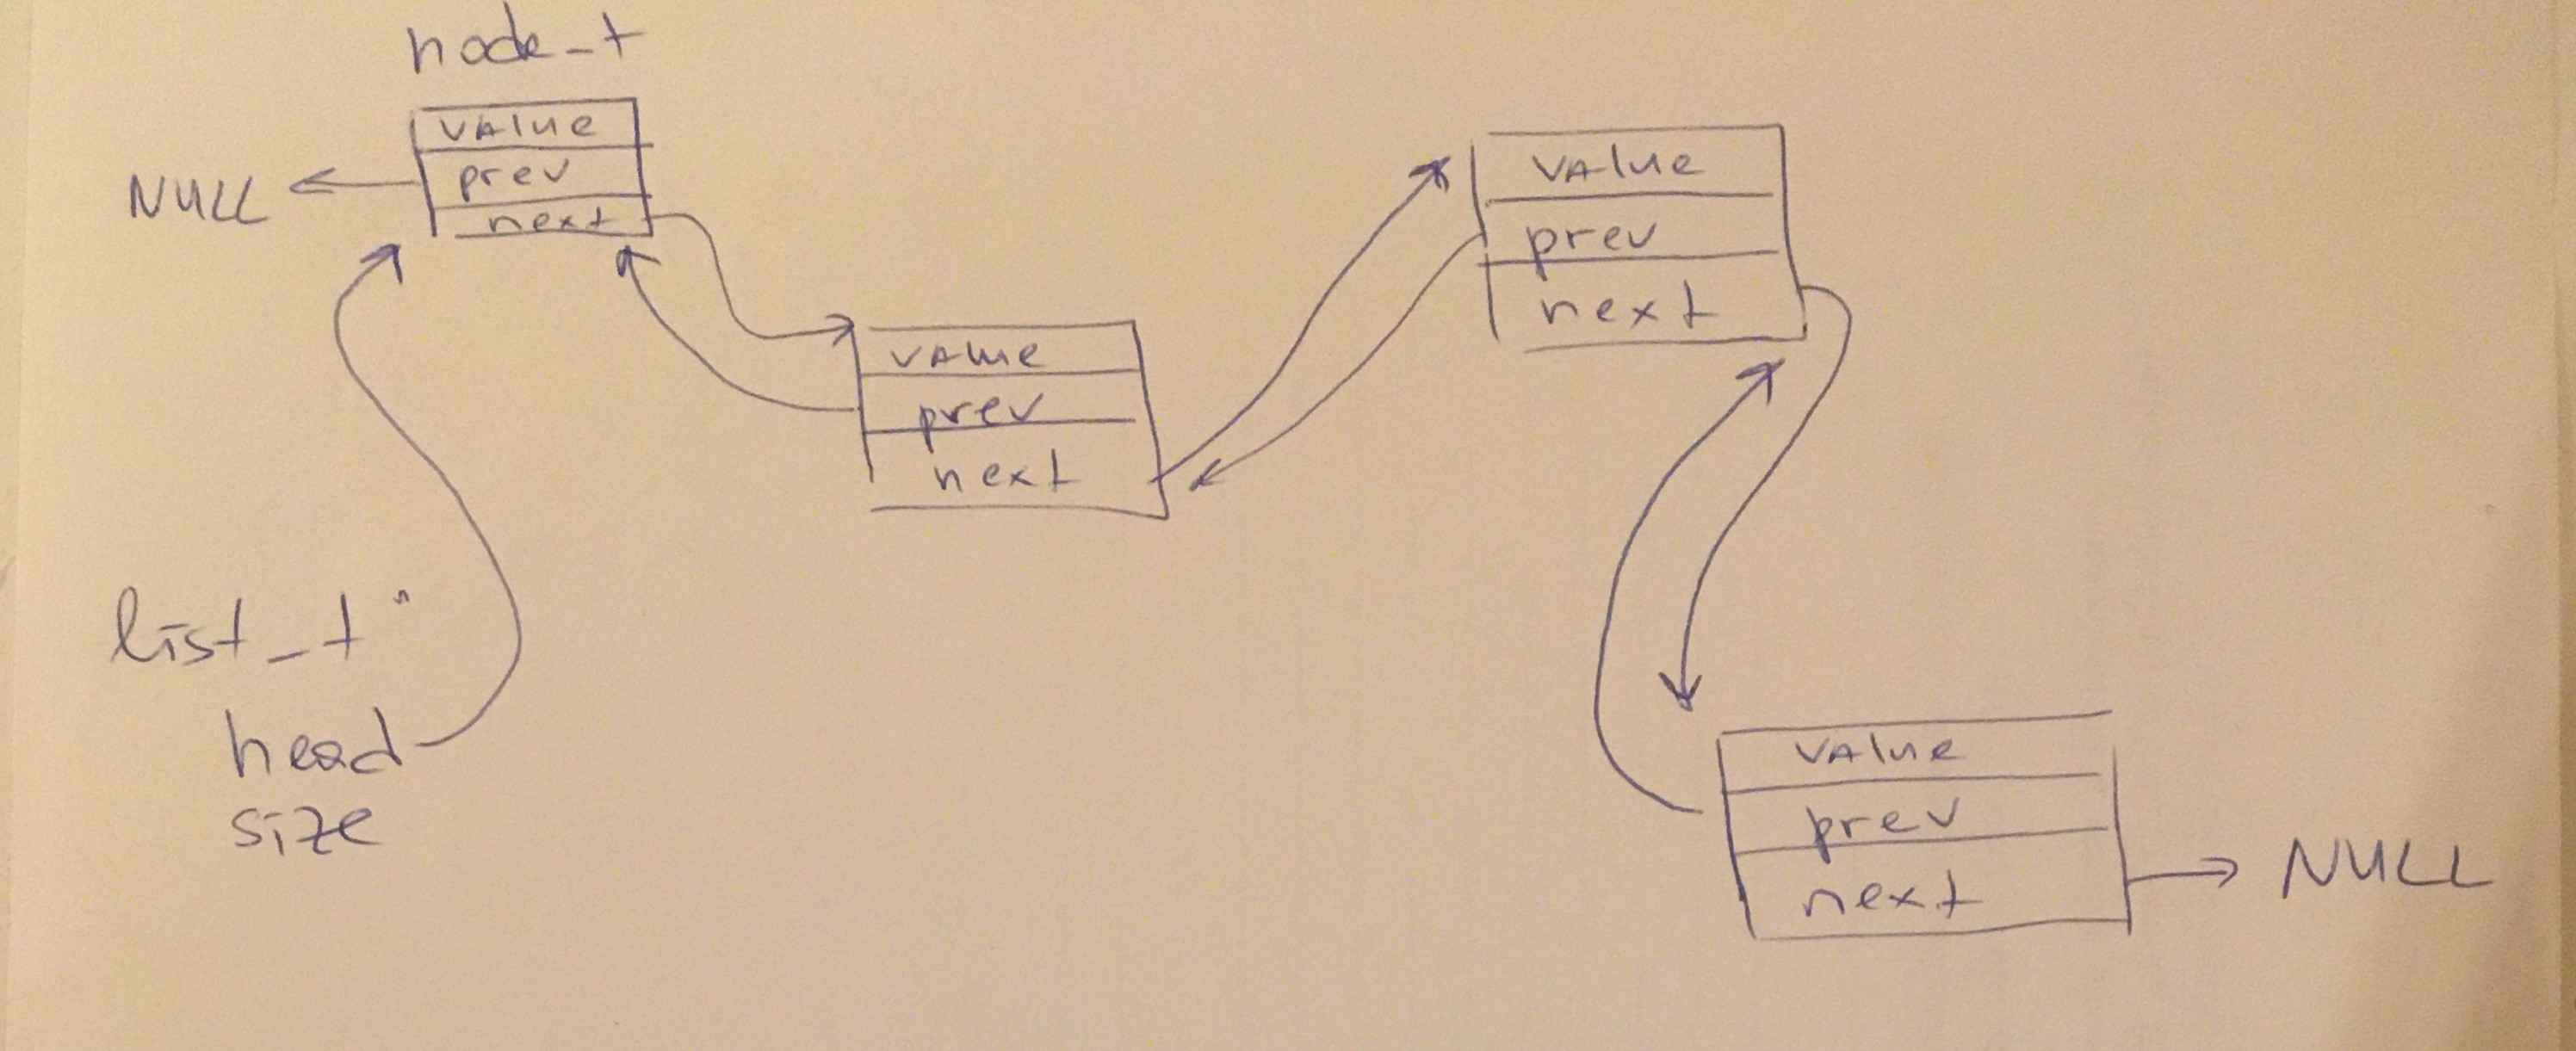 node_t
value
prev
next
NULL
value
prev
next
value
prev
next
list_t
head
size
value
prev
next
NULL